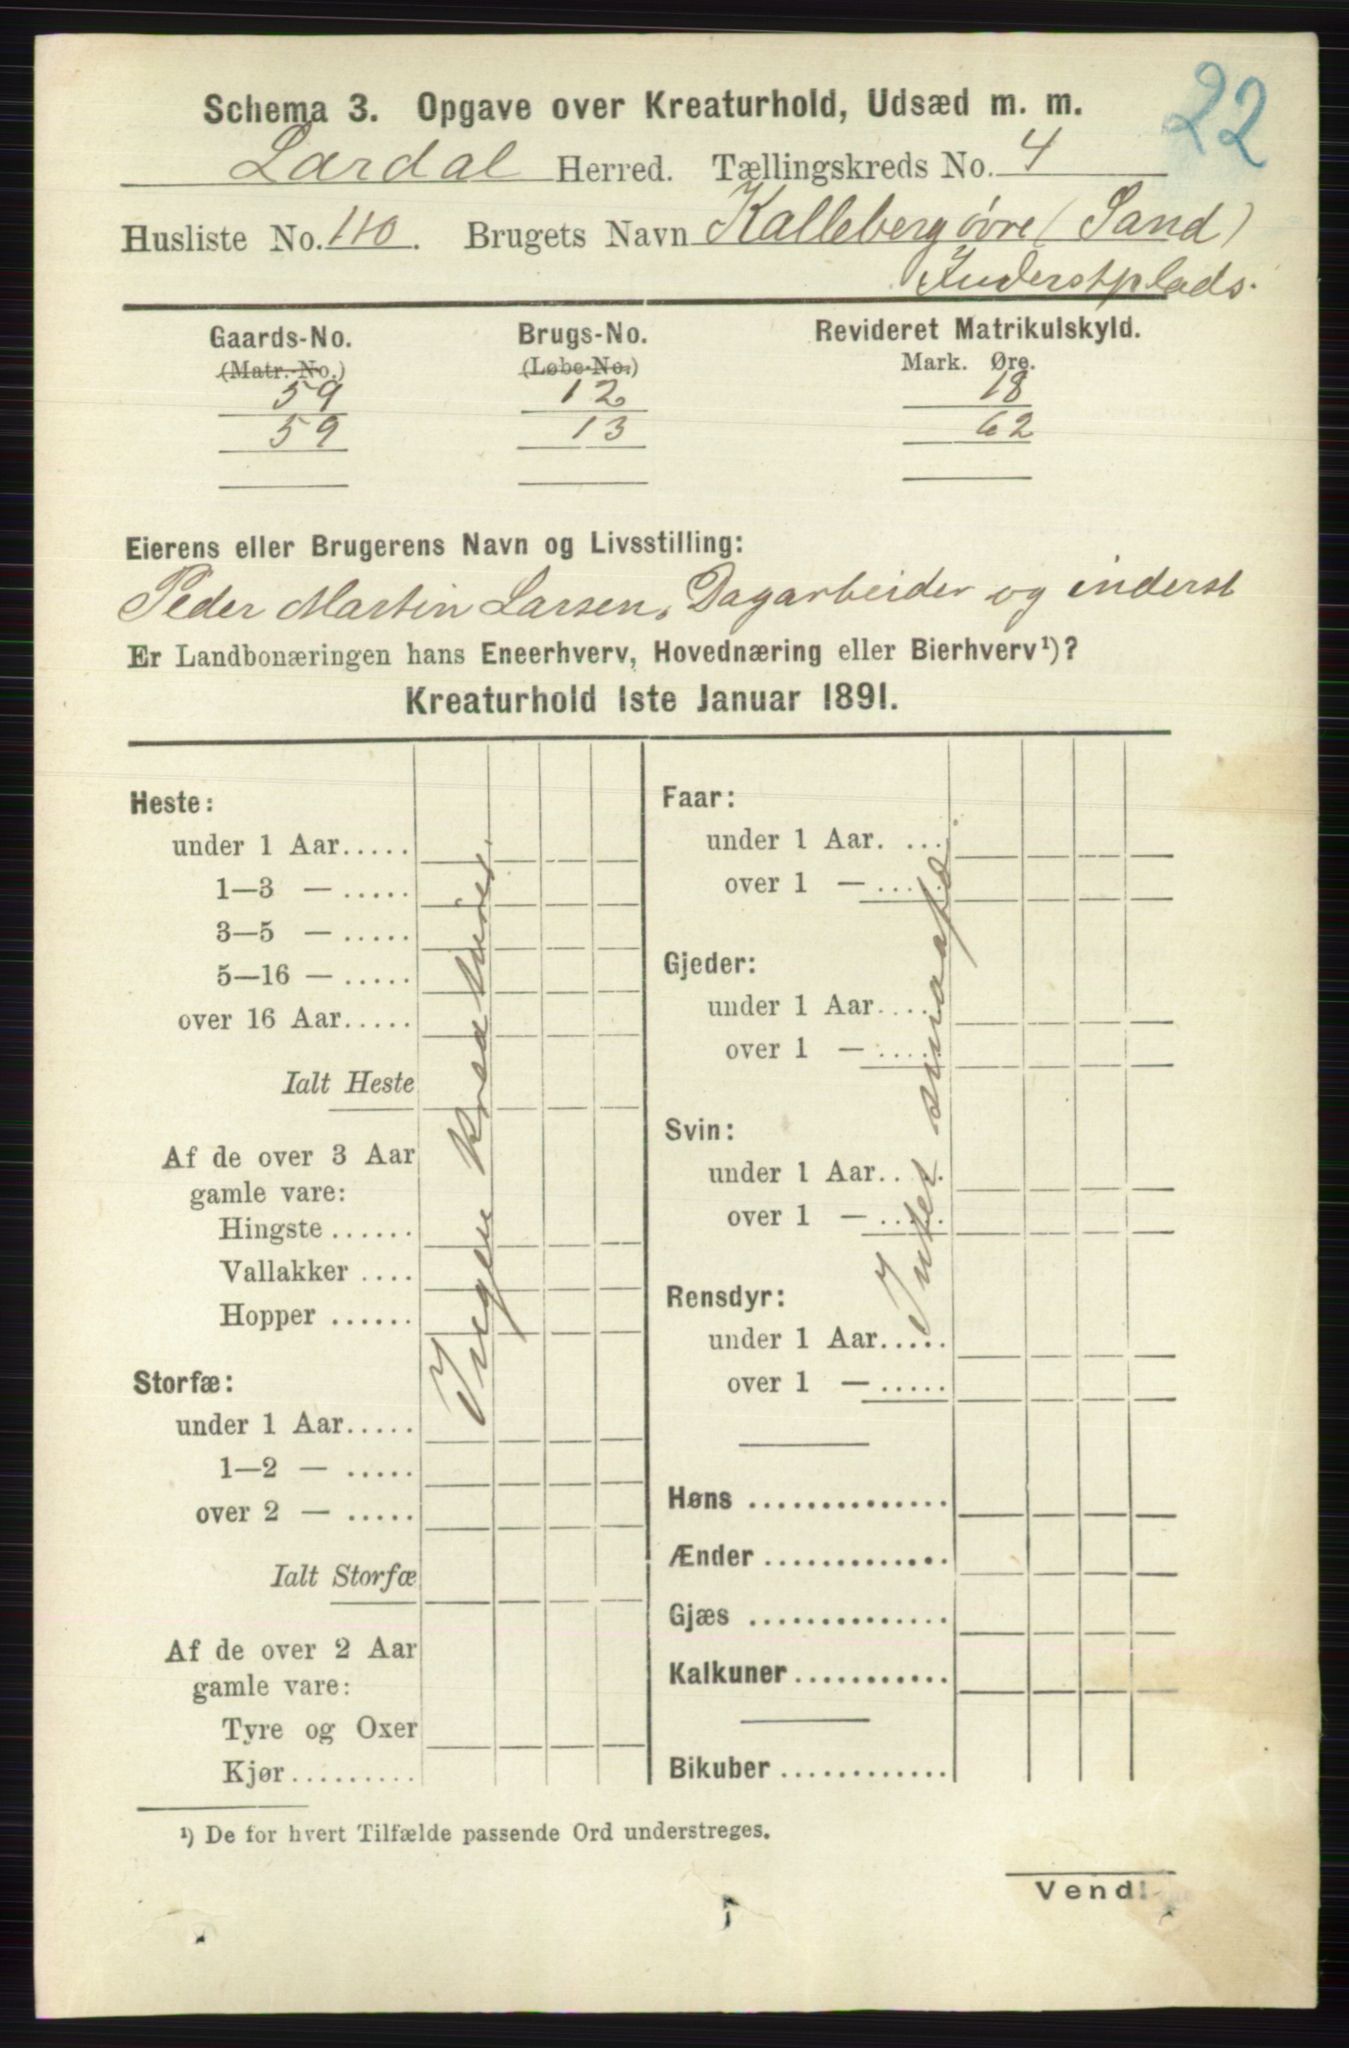 22
Schema 3. Opgave over Kreaturhold, Udsæd m. m.
Lardal Herred. Tællingskreds No. 4
Husliste No. 110. Brugets Navn Kalleberg øvre (Sand)
Inderstplads.
Gaards-No. Brugs-No. Revideret Matrikulskyld.
(Matr.-No.) (Løbe-No.) Mark. Øre.
59 12 18
59 13 62
Eierens eller Brugerens Navn og Livsstilling:
Peder Martin Larsen, Dagarbeider og inderst
Er Landbonæringen hans Eneerhverv, Hovednæring eller Bierhverv¹)?
Kreaturhold 1ste Januar 1891.
Heste:
under 1 Aar.....
1—3 — .....
3—5 — .....
5—16 — .....
over 16 Aar.....
Ialt Heste
Af de over 3 Aar
gamle vare:
Hingste ......
Vallakker ....
Hopper ......
Storfæ:
under 1 Aar.....
1—2 — .....
over 2 — .....
Ialt Storfæ
Af de over 2 Aar
gamle vare:
Tyre og Oxer
Kjør..........
Ingen Kreaturer.
Faar:
under 1 Aar. ...
over 1 — .....
Gjeder:
under 1 Aar.....
over 1 — .....
Svin:
under 1 Aar.....
over 1 — .....
Rensdyr:
under 1 Aar.....
over 1 — .....
Intet smaafæ
Høns ..............
Ænder .............
Gjæs ..............
Kalkuner...........
Bikuber ............
¹) De for hvert Tilfælde passende Ord understreges.
Vend!